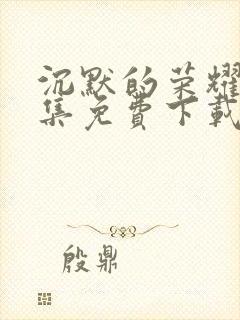 沉默的荣耀
集免费下载
殷鼎